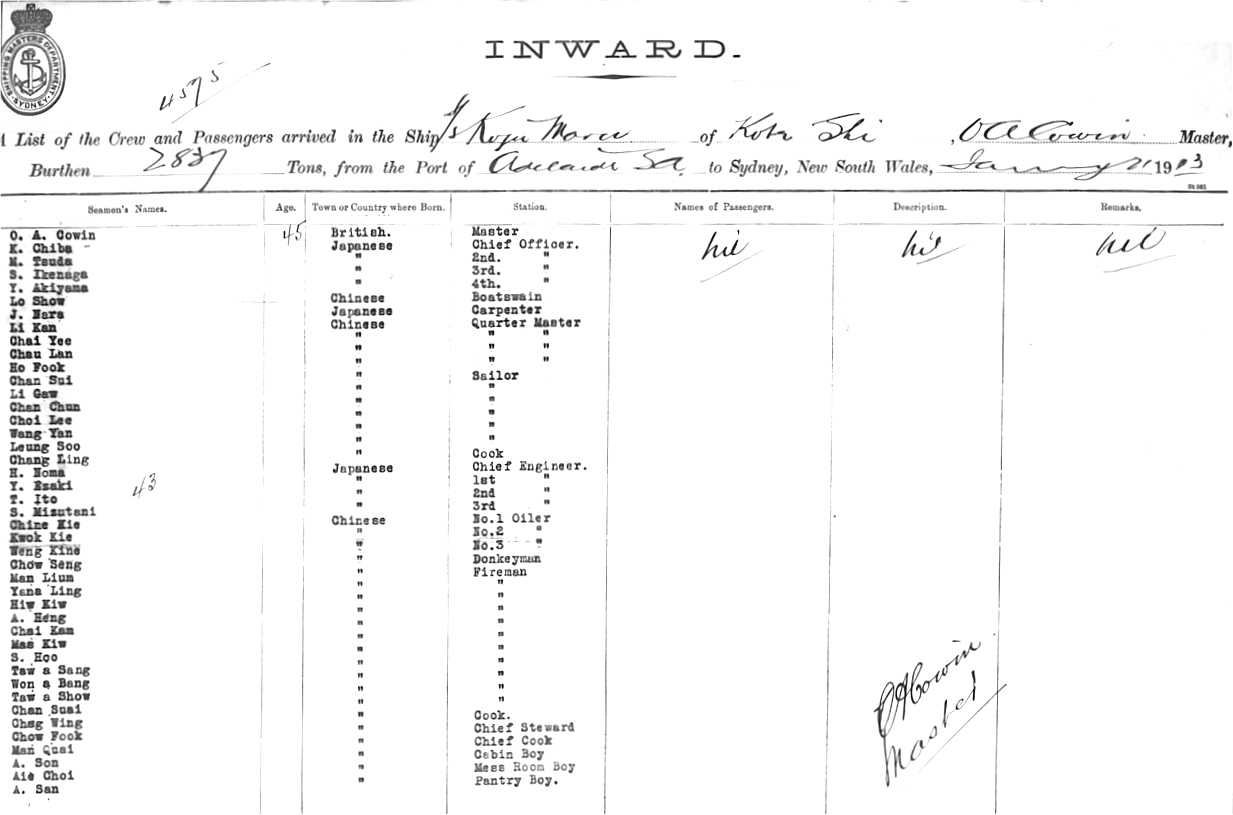 SHIPPING MASTERS DEPARTMENT SYDNEY
INWARD.
4575
A List of the Crew and Passengers arrived in the Ship S/S Koju Maru of Kobe Shi, O A Cowin Master,
Burthen 2837 Tons, from the Port of Adelaide SA to Sydney, New South Wales, January 21 1913
Seamen's Names. Age. Town or Country where Born. Station. Names of Passengers. Description. Remarks.
O. A. Cowin 45 British. Master nil nil nil
K. Chiba Japanese Chief Officer.
M. Tsuda " 2nd. "
S. Ikenaga " 3rd. "
Y. Akiyama " 4th. "
Lo Show Chinese Boatswain
J. Hara Japanese Carpenter
Li Kan Chinese Quarter Master
Chai Yee " " "
Chau Lan " " "
Ho Fook " " "
Chan Sui " Sailor
Li Gaw " "
Chan Chun " "
Choi Lee " "
Wang Yan " "
Leung Soo " "
Chang Ling " Cook
H. Noma Japanese Chief Engineer.
Y. Esaki 43 " 1st "
T. Ito " 2nd "
S. Mizutani " 3rd "
Chine Kie Chinese No.1 Oiler
Kwok Kie " No.2 "
Weng Kine " No.3 "
Chow Seng " Donkeyman
Man Lium " Fireman
Yana Ling " "
Hiw Kiw " "
A. Heng " "
Chai Kam " "
Mas Kiw " "
S. Hoo " "
Taw a Sang " "
Won a Bang " "
Taw a Show " "
Chan Suai " "
Chag Wing " Cook.
Chow Fook " Chief Steward
Man Quai " Chief Cook
A. Son " Cabin Boy
Aie Choi " Mess Room Boy
A. San " Pantry Boy.
O A Cowin
Master